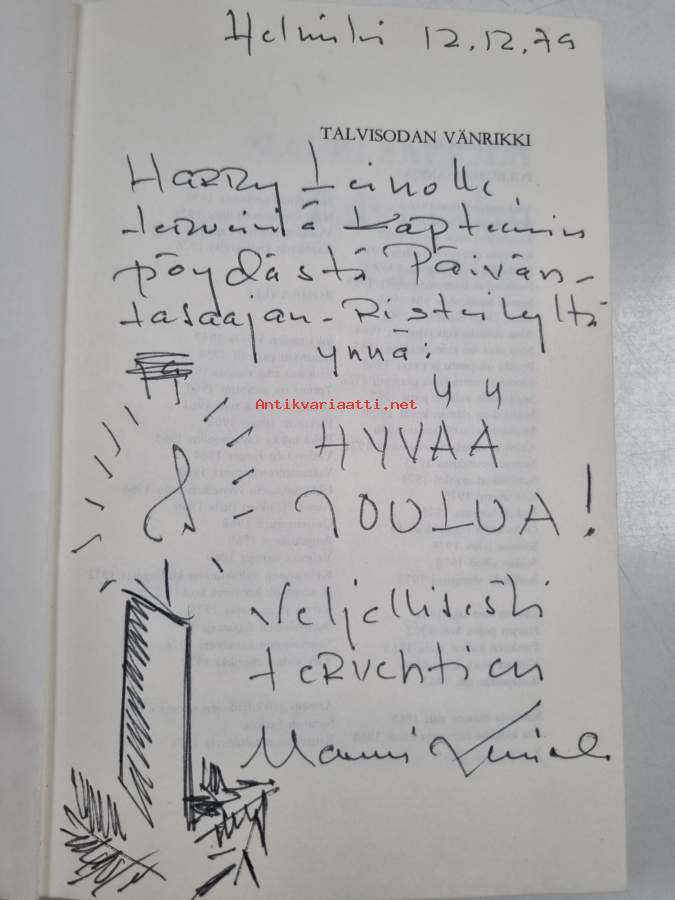 Helsinki 12.12.79
TALVISODAN VÄNRIKKI
Harry Leinolle,
terveisiä Kapteenin
pöydästä Päivän-
tasaajan-Risteilyltä
ynnä:
Antikvariaatti.net
HYVÄÄ
JOULUA!
Veljellisesti
tervehtien